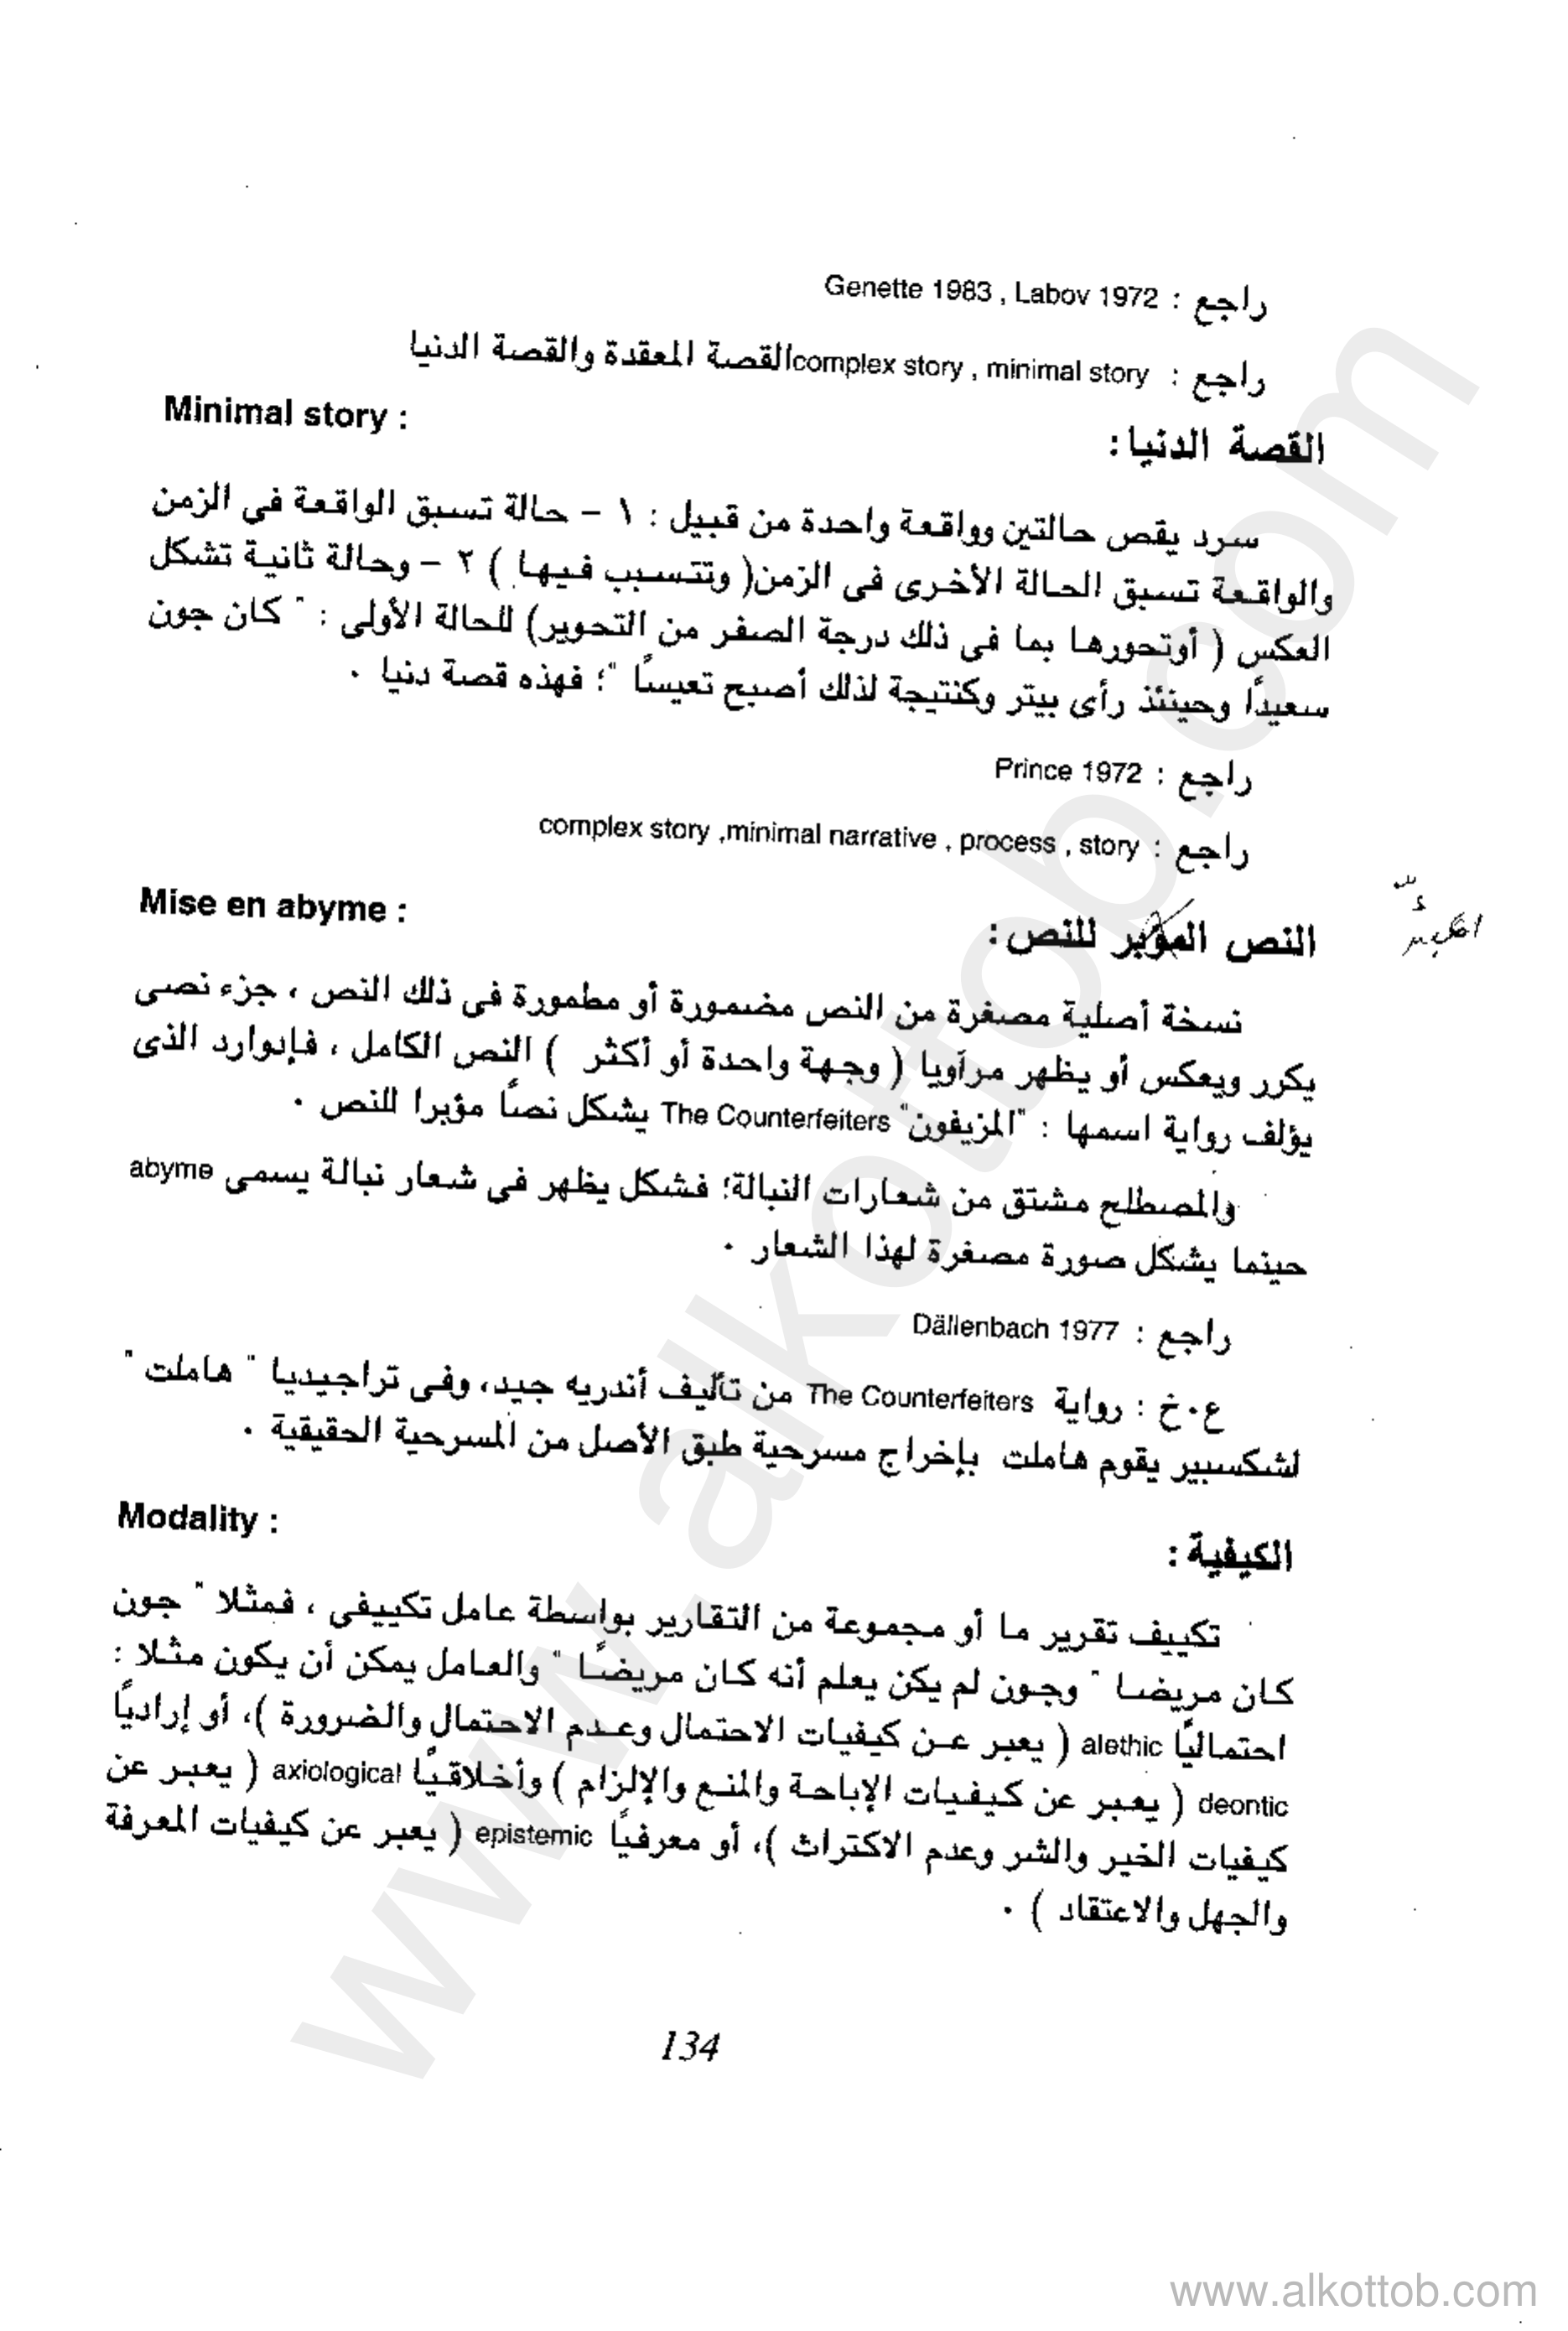 راجع : Genette 1983 , Labov 1972
راجع : complex story , minimal storyالقصة المعقدة والقصة الدنيا
Minimal story :
القصة الدنيا:
سرد يقص حالتين وواقعة واحدة من قبيل : ١ – حالة تسبق الواقعة فى الزمن
والواقعة تسبق الحالة الأخرى فى الزمن( وتتسبب فيها ) ٢ – وحالة ثانية تشكل
العكس ( أوتحورها بما فى ذلك درجة الصفر من التحوير) للحالة الأولى : " كان جون
سعيدًا وحينئذ رأى بيتر وكنتيجة لذلك أصبح تعيسًا "؛ فهذه قصة دنيا .
راجع : Prince 1972
راجع : complex story ,minimal narrative , process , story
Mise en abyme :
النص المؤبر للنص:
نسخة أصلية مصغرة من النص مضمورة أو مطمورة فى ذلك النص ، جزء نصى
يكرر ويعكس أو يظهر مرآويا ( وجهة واحدة أو أكثر ) النص الكامل ، فإدوارد الذى
يؤلف رواية اسمها : "المزيفون" The Counterfeiters يشكل نصاً مؤبرا للنص .
والمصطلح مشتق من شعارات النبالة؛ فشكل يظهر فى شعار نبالة يسمى abyme
حينما يشكل صورة مصغرة لهذا الشعار .
راجع : Dällenbach 1977
ع.خ : رواية The Counterfeiters من تأليف أندريه جيد، وفى تراجيديا " هاملت "
لشكسبير يقوم هاملت بإخراج مسرحية طبق الأصل من المسرحية الحقيقية .
Modality :
الكيفية :
تكييف تقرير ما أو مجموعة من التقارير بواسطة عامل تكييفى ، فمثلا " جون
كان مريضا " وجون لم يكن يعلم أنه كان مريضًا " والعامل يمكن أن يكون مثلا :
احتماليًا alethic ( يعبر عن كيفيات الاحتمال وعدم الاحتمال والضرورة )، أو إراديًا
deontic ( يعبر عن كيفيات الإباحة والمنع والإلزام ) وأخلاقيًا axiological ( يعبر عن
كيفيات الخير والشر وعدم الاكتراث )، أو معرفيًا epistemic ( يعبر عن كيفيات المعرفة
والجهل والاعتقاد ) .
134
www.alkottob.com
www.alkottob.com